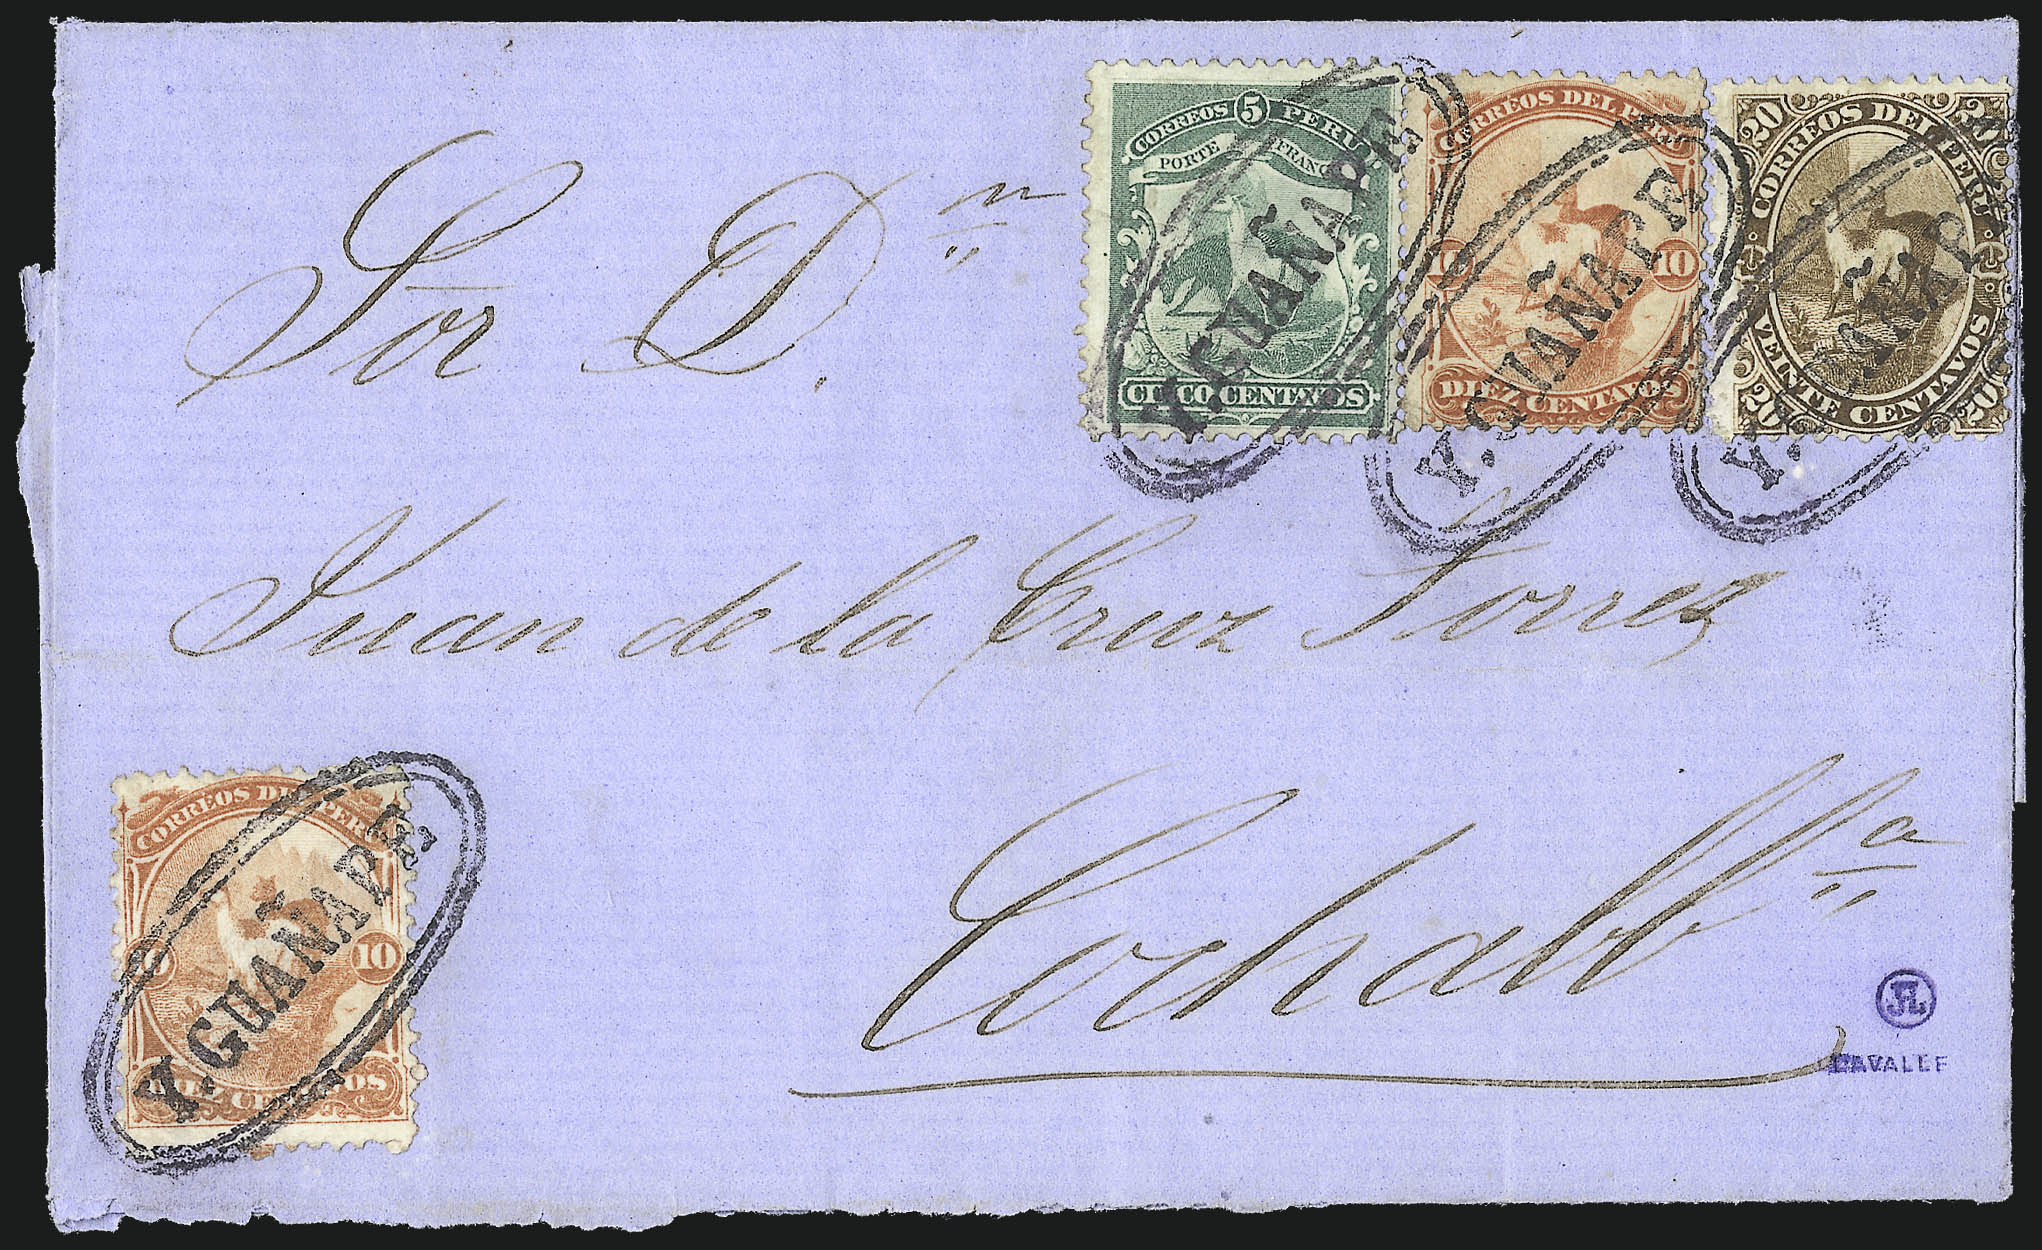 Sōr Dⁿ.
Juan de la Cruz Torrez
Cochabbᵃ
CORREOS 5 PERU
PORTE FRANCO
CINCO CENTAVOS
Y. GUAÑAPE
CORREOS DEL PERU
10 10
DIEZ CENTAVOS
Y. GUAÑAPE
20 20
CORREOS DEL PERU
VEINTE CENTAVOS
20 20
Y. GUAÑAPE
CORREOS DEL PERU
10 10
DIEZ CENTAVOS
Y. GUAÑAPE
JL
LAVALLE